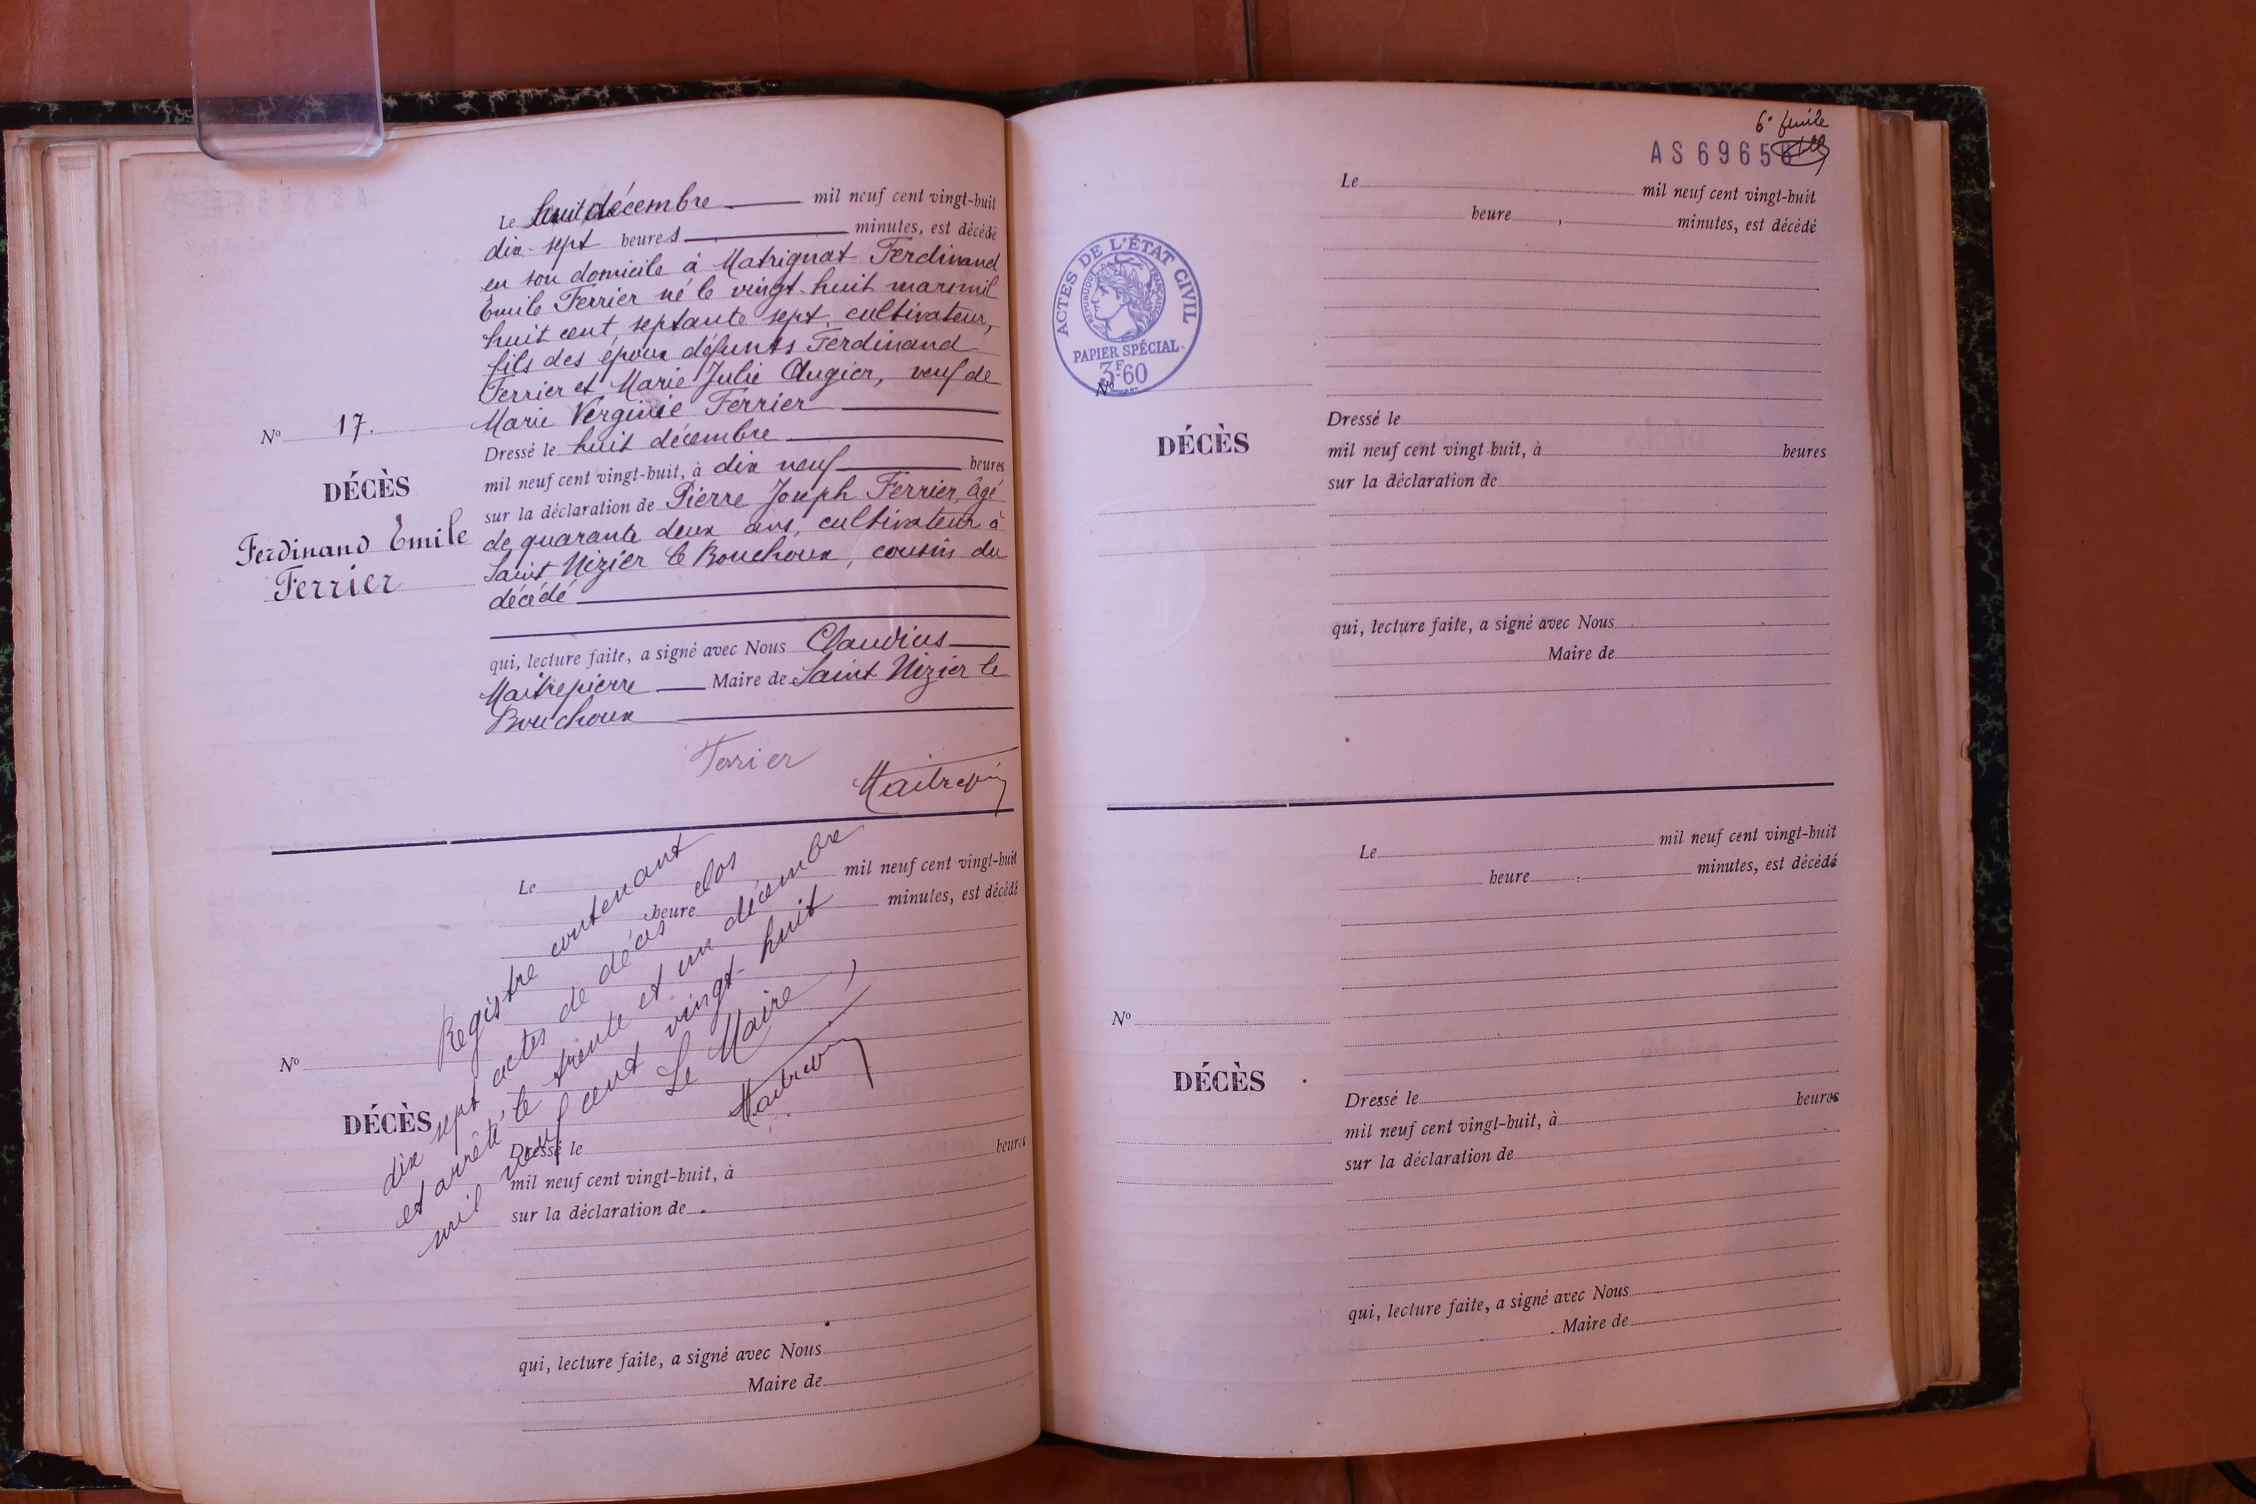 Le huit décembre mil neuf cent vingt-huit
dix-sept heures minutes, est décédé
en son domicile à Matrignat Ferdinand
Emile Ferrier né le vingt-huit mars mil
huit cent septante sept, cultivateur,
fils des époux défunts Ferdinand
Ferrier et Marie Julie Augier, veuf de
Marie Verginie Ferrier
Dressé le huit décembre
mil neuf cent vingt-huit, à dix neuf heures
sur la déclaration de Pierre Joseph Ferrier, âgé
de quarante deux ans, cultivateur à
Saint Nizier le Bouchoux, cousin du
décédé
qui, lecture faite, a signé avec Nous Claudius
Maitrepierre Maire de Saint Nizier le
Bouchoux
Nº 17.
DÉCÈS
Ferdinand Emile
Ferrier
Ferrier
Le mil neuf cent vingt-huit
heure minutes, est décédé
Nº
DÉCÈS
Registre contenant
dix sept actes de décès clos
et arrêté le trente et un décembre
mil neuf cent vingt-huit
Le Maire,
Dressé le
heures
mil neuf cent vingt-huit, à
sur la déclaration de
qui, lecture faite, a signé avec Nous
Maire de
6e feuille
AS 6965
ACTES DE L'ÉTAT CIVIL
RÉPUBLIQUE FRANÇAISE
PAPIER SPÉCIAL
3F60
Le mil neuf cent vingt-huit
heure , minutes, est décédé
Nº
DÉCÈS
Dressé le
mil neuf cent vingt-huit, à heures
sur la déclaration de
qui, lecture faite, a signé avec Nous
Maire de
Le mil neuf cent vingt-huit
heure minutes, est décédé
Nº
DÉCÈS
Dressé le
mil neuf cent vingt-huit, à heures
sur la déclaration de
qui, lecture faite, a signé avec Nous
Maire de